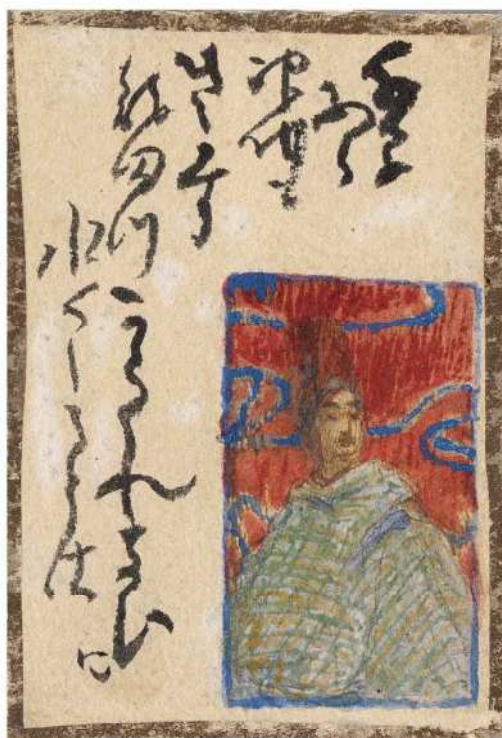 千早
ふる
神世
もきかす
龍田川からくれなゐに
水くゝるとは